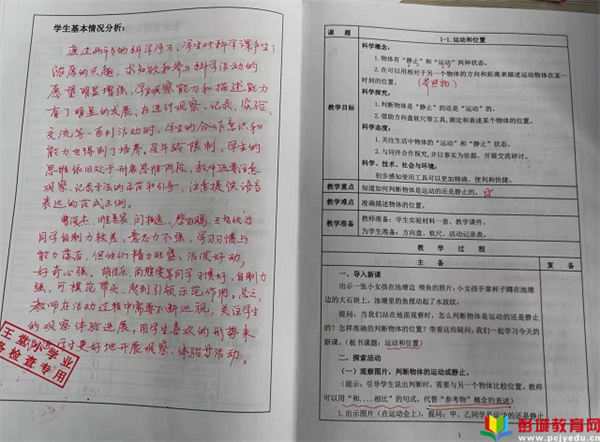 学生基本情况分析：
通过两年的科学学习，学生对科学课产生了
浓厚的兴趣，求知欲和参与科学活动的
愿望明显增强，学生观察能力和描述能力
有了明显的发展，在进行观察、记录、实验、
交流等一系列活动时，学生的合作意识和
能力也得到了培养。受年龄限制，学生的
思维依旧处于形象思维阶段，教师还要注意
观察、记录方法的示范和引导，注意提供语言
表达的范式示例。
同学自制力较差，意志力不强，学习习惯与
能力落后，但他们精力旺盛，活泼好动，
好奇心强。等同学习惯好，自制力
强，可模范带头，起到引领示范作用。总之，
教师在活动过程中需要不断巡视，关注学
生的观察体验进展，用学生喜欢的形势来
学生更好地开展观察、体验等活动。
王堂小学业
务检查专用
课 题
1-1.运动和位置
教学目标
科学概念：
1.物体有“静止”和“运动”两种状态。
2.在可以用相对于另一个物体的方向和距离来描述运动物体在某一
时刻的位置。（参照物）
科学探究：
1.判断物体是“静止”的还是“运动”的。
2.借助方向盘软尺等工具，测定和表述某个物体的位置。
科学态度：
1.关注生活中物体的“运动”和“静止”状态。
2.与同伴合作探究，并以事实为依据，开展交流研讨。
科学、技术、社会与环境：
初步感知使用工具可以更加精确、便利和快捷。
教学重点
知道如何判断物体是运动的还是静止的。
教学难点
准确描述物体的位置。
教学准备
教师准备：学生实验材料一套、教学课件。
为学生准备：方向盘、软尺、活动记录表。
教 学 过 程
主 备
复 备
一、导入新课
出示一张小女孩在池塘边 喂鱼的照片：小女孩手拿杯子蹲在池塘
边的大石块上，池塘里的鱼搅动起了水波纹。
提问：当我们站在地面观察时，怎么判断物体是运动的还是静止
的？怎样准确的判断物体的位置？带着这些疑问，我们一起学习今天的
新课。（板书课题：运动和位置）
二、探索活动
（一）观察图片，判断物体的运动或静止。
（提示：引导学生说出判断时，需要与另一个物体比较位置。教师
可以用“和……相比”的句式，代替“参考物”概念的表述）
1.出示图片（在运动会上），提问：甲、乙同学是运动的还是静止
1
彭城教育网
www.pcjyedu.cn